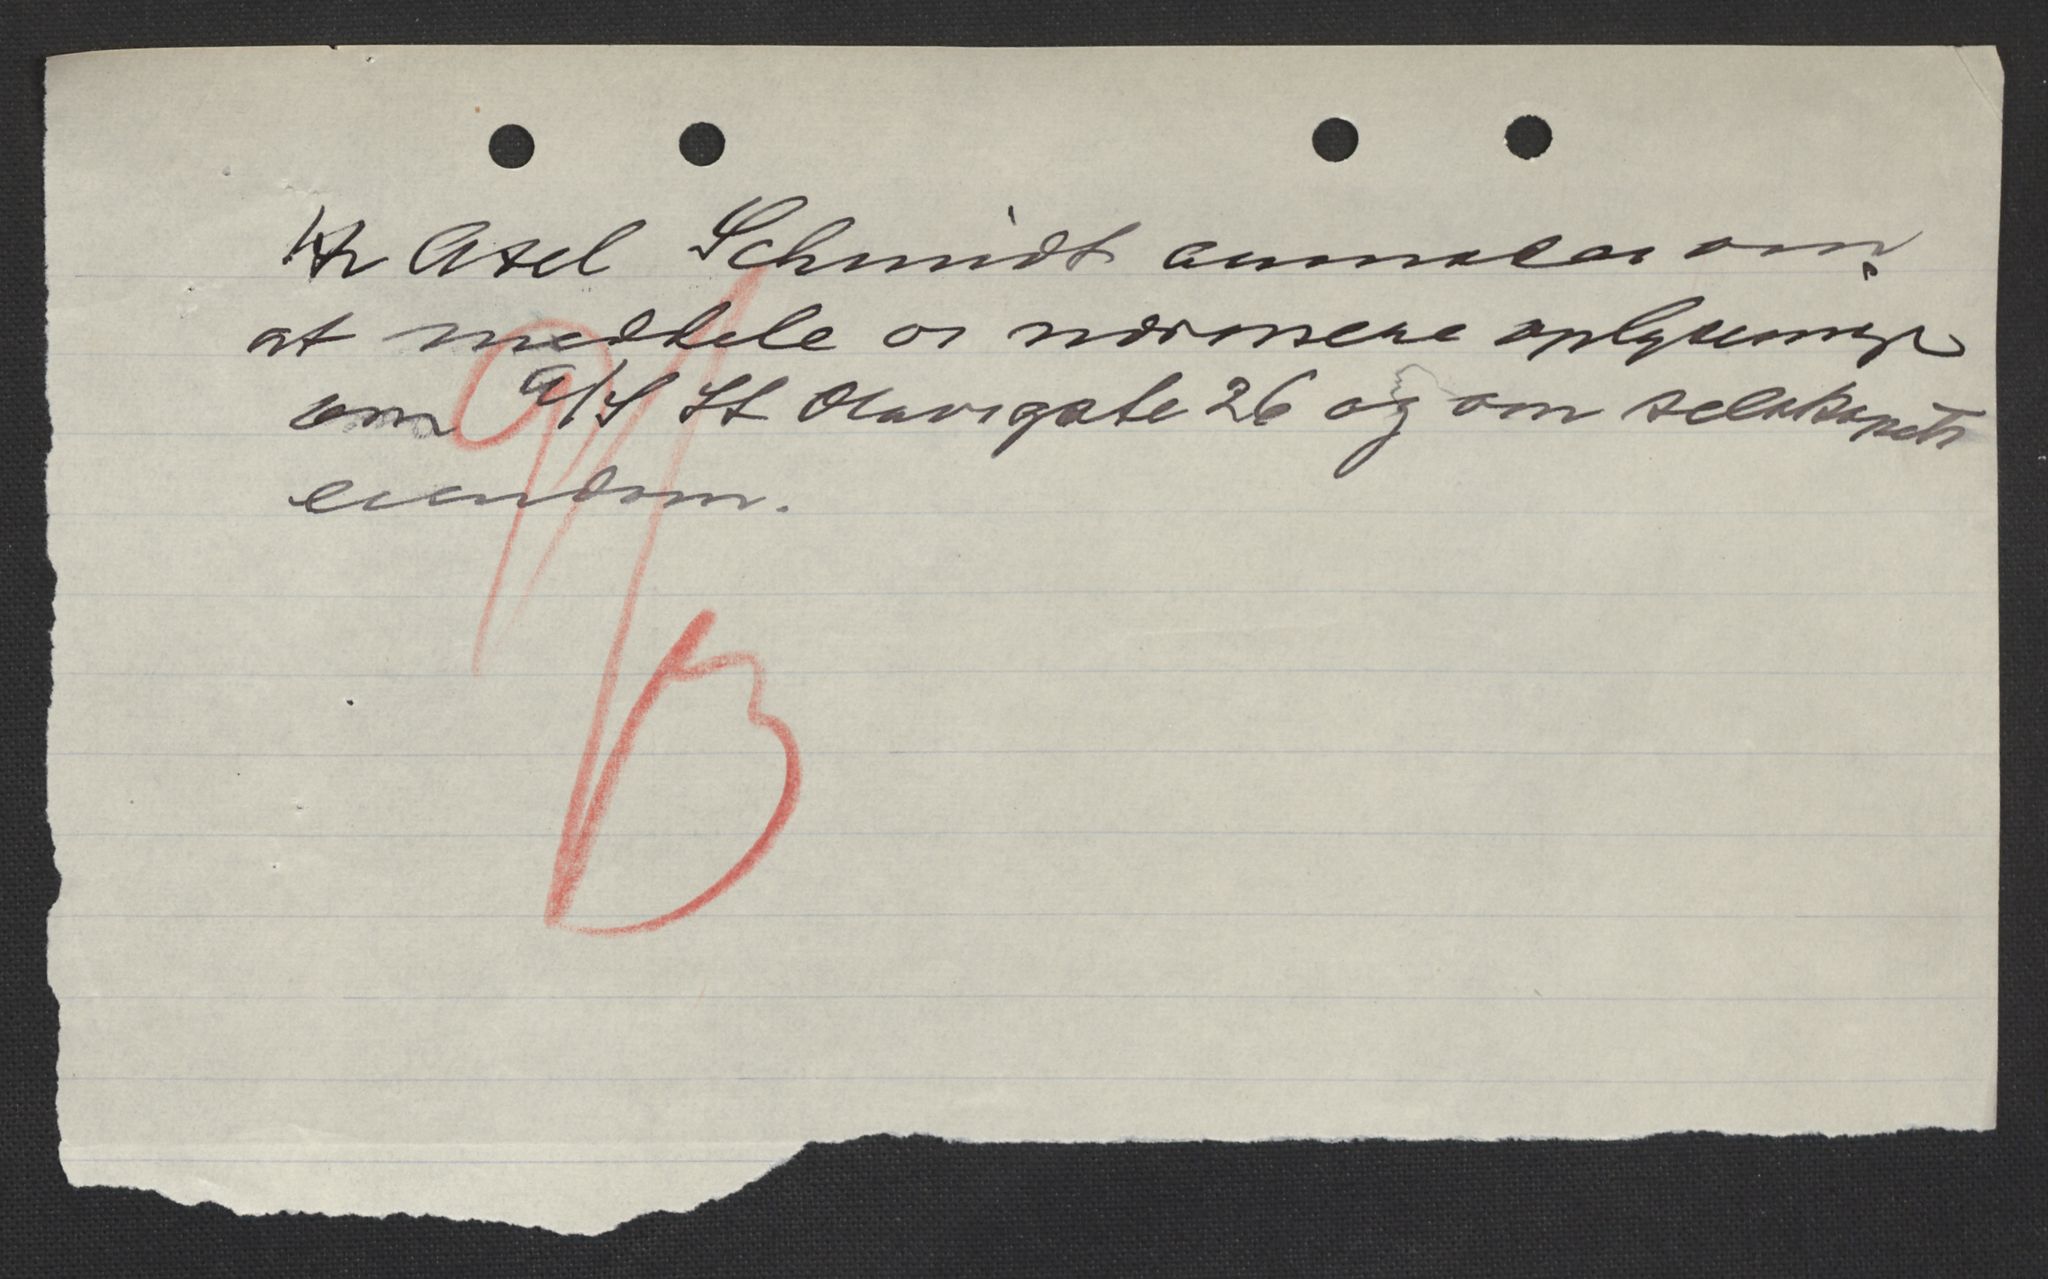 Hr Axel Schmidt anmodes om
at meddele os nærmere oplysninger
om A/S St Olavsgate 26 og om selskapets
eiendom.
B